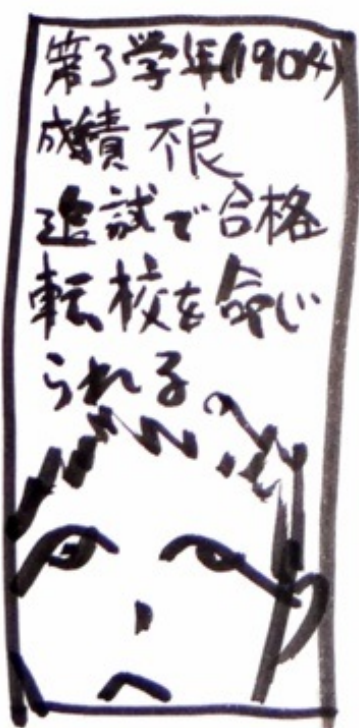 第3学年(1904)
成績不良
追試で合格
転校を命じ
られる。